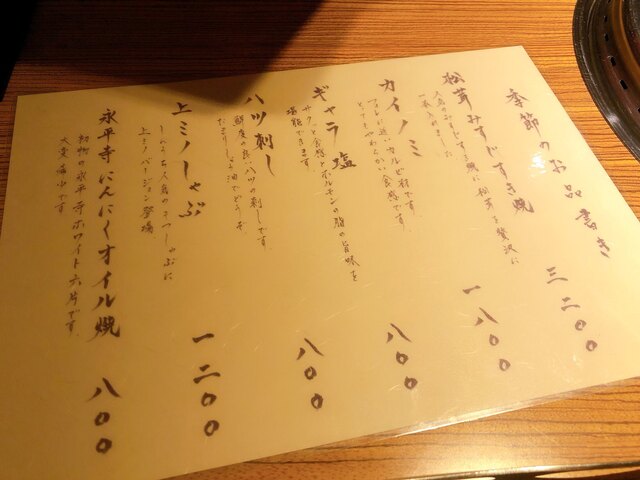 季節のお品書き
松茸みすじすき焼 三二〇〇
人気のみすじすき焼に松茸を贅沢に
一本入れました
カイノミ 一八〇〇
フィレに近いカルビ部です。
とってもやわらかい食感です。
ギャラ塩 八〇〇
サクッと食感とホルモンの脂の旨味を
堪能できます。
ハツ刺し 八〇〇
鮮度の良いハツの刺しです。
たまりしょう油でどうぞ
上ミノしゃぶ 一二〇〇
人気の しゃぶに
上ミノバージョン登場
永平寺にんにくオイル焼 八〇〇
初物の永平寺ホワイト六片です。
大変希少です